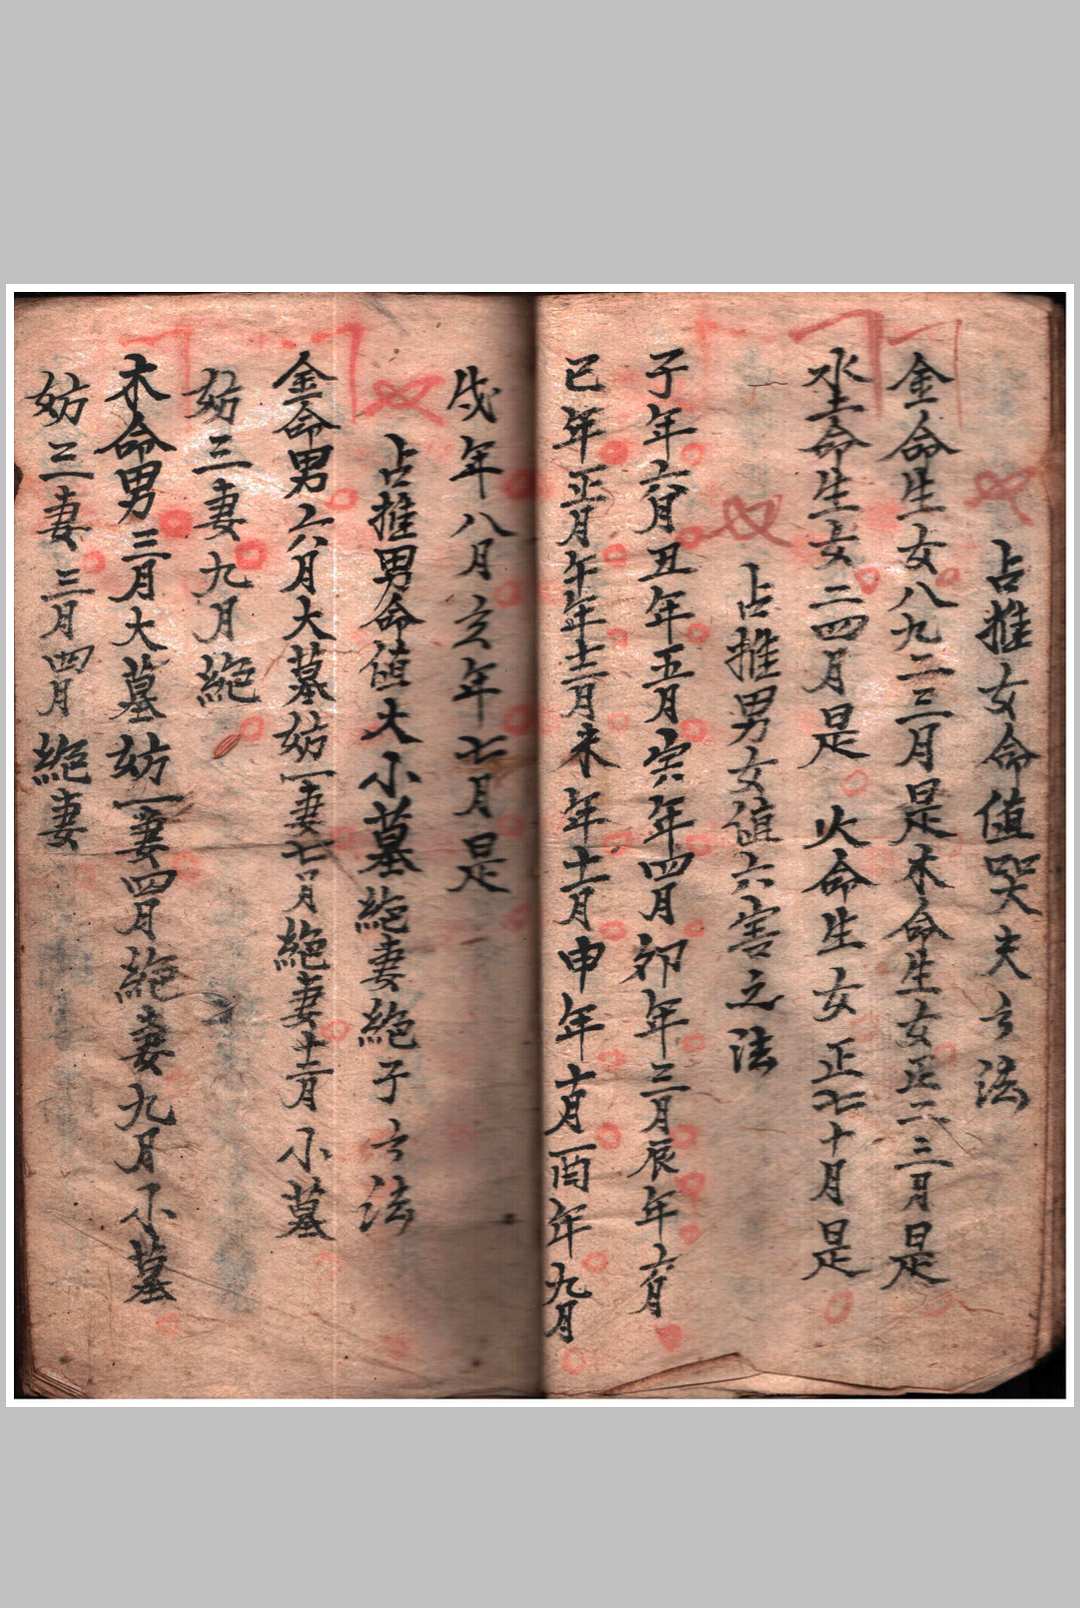 占推女命值哭夫之法
金命生女八九二三月是木命生女正二三月是
水土命生女二四月是 火命生女正七十月是
占推男女值六害之法
子年六月丑年五月寅年四月卯年三月辰年二月
巳年正月午年十二月未年十一月申年十月酉年九月
戌年八月亥年七月是
占推男命值大小墓絕妻絕子之法
金命男六月大墓妨一妻七月絕妻十二月小墓
妨三妻九月絕
木命男三月大墓妨一妻四月絕妻九月小墓
妨三妻三月四月絕妻